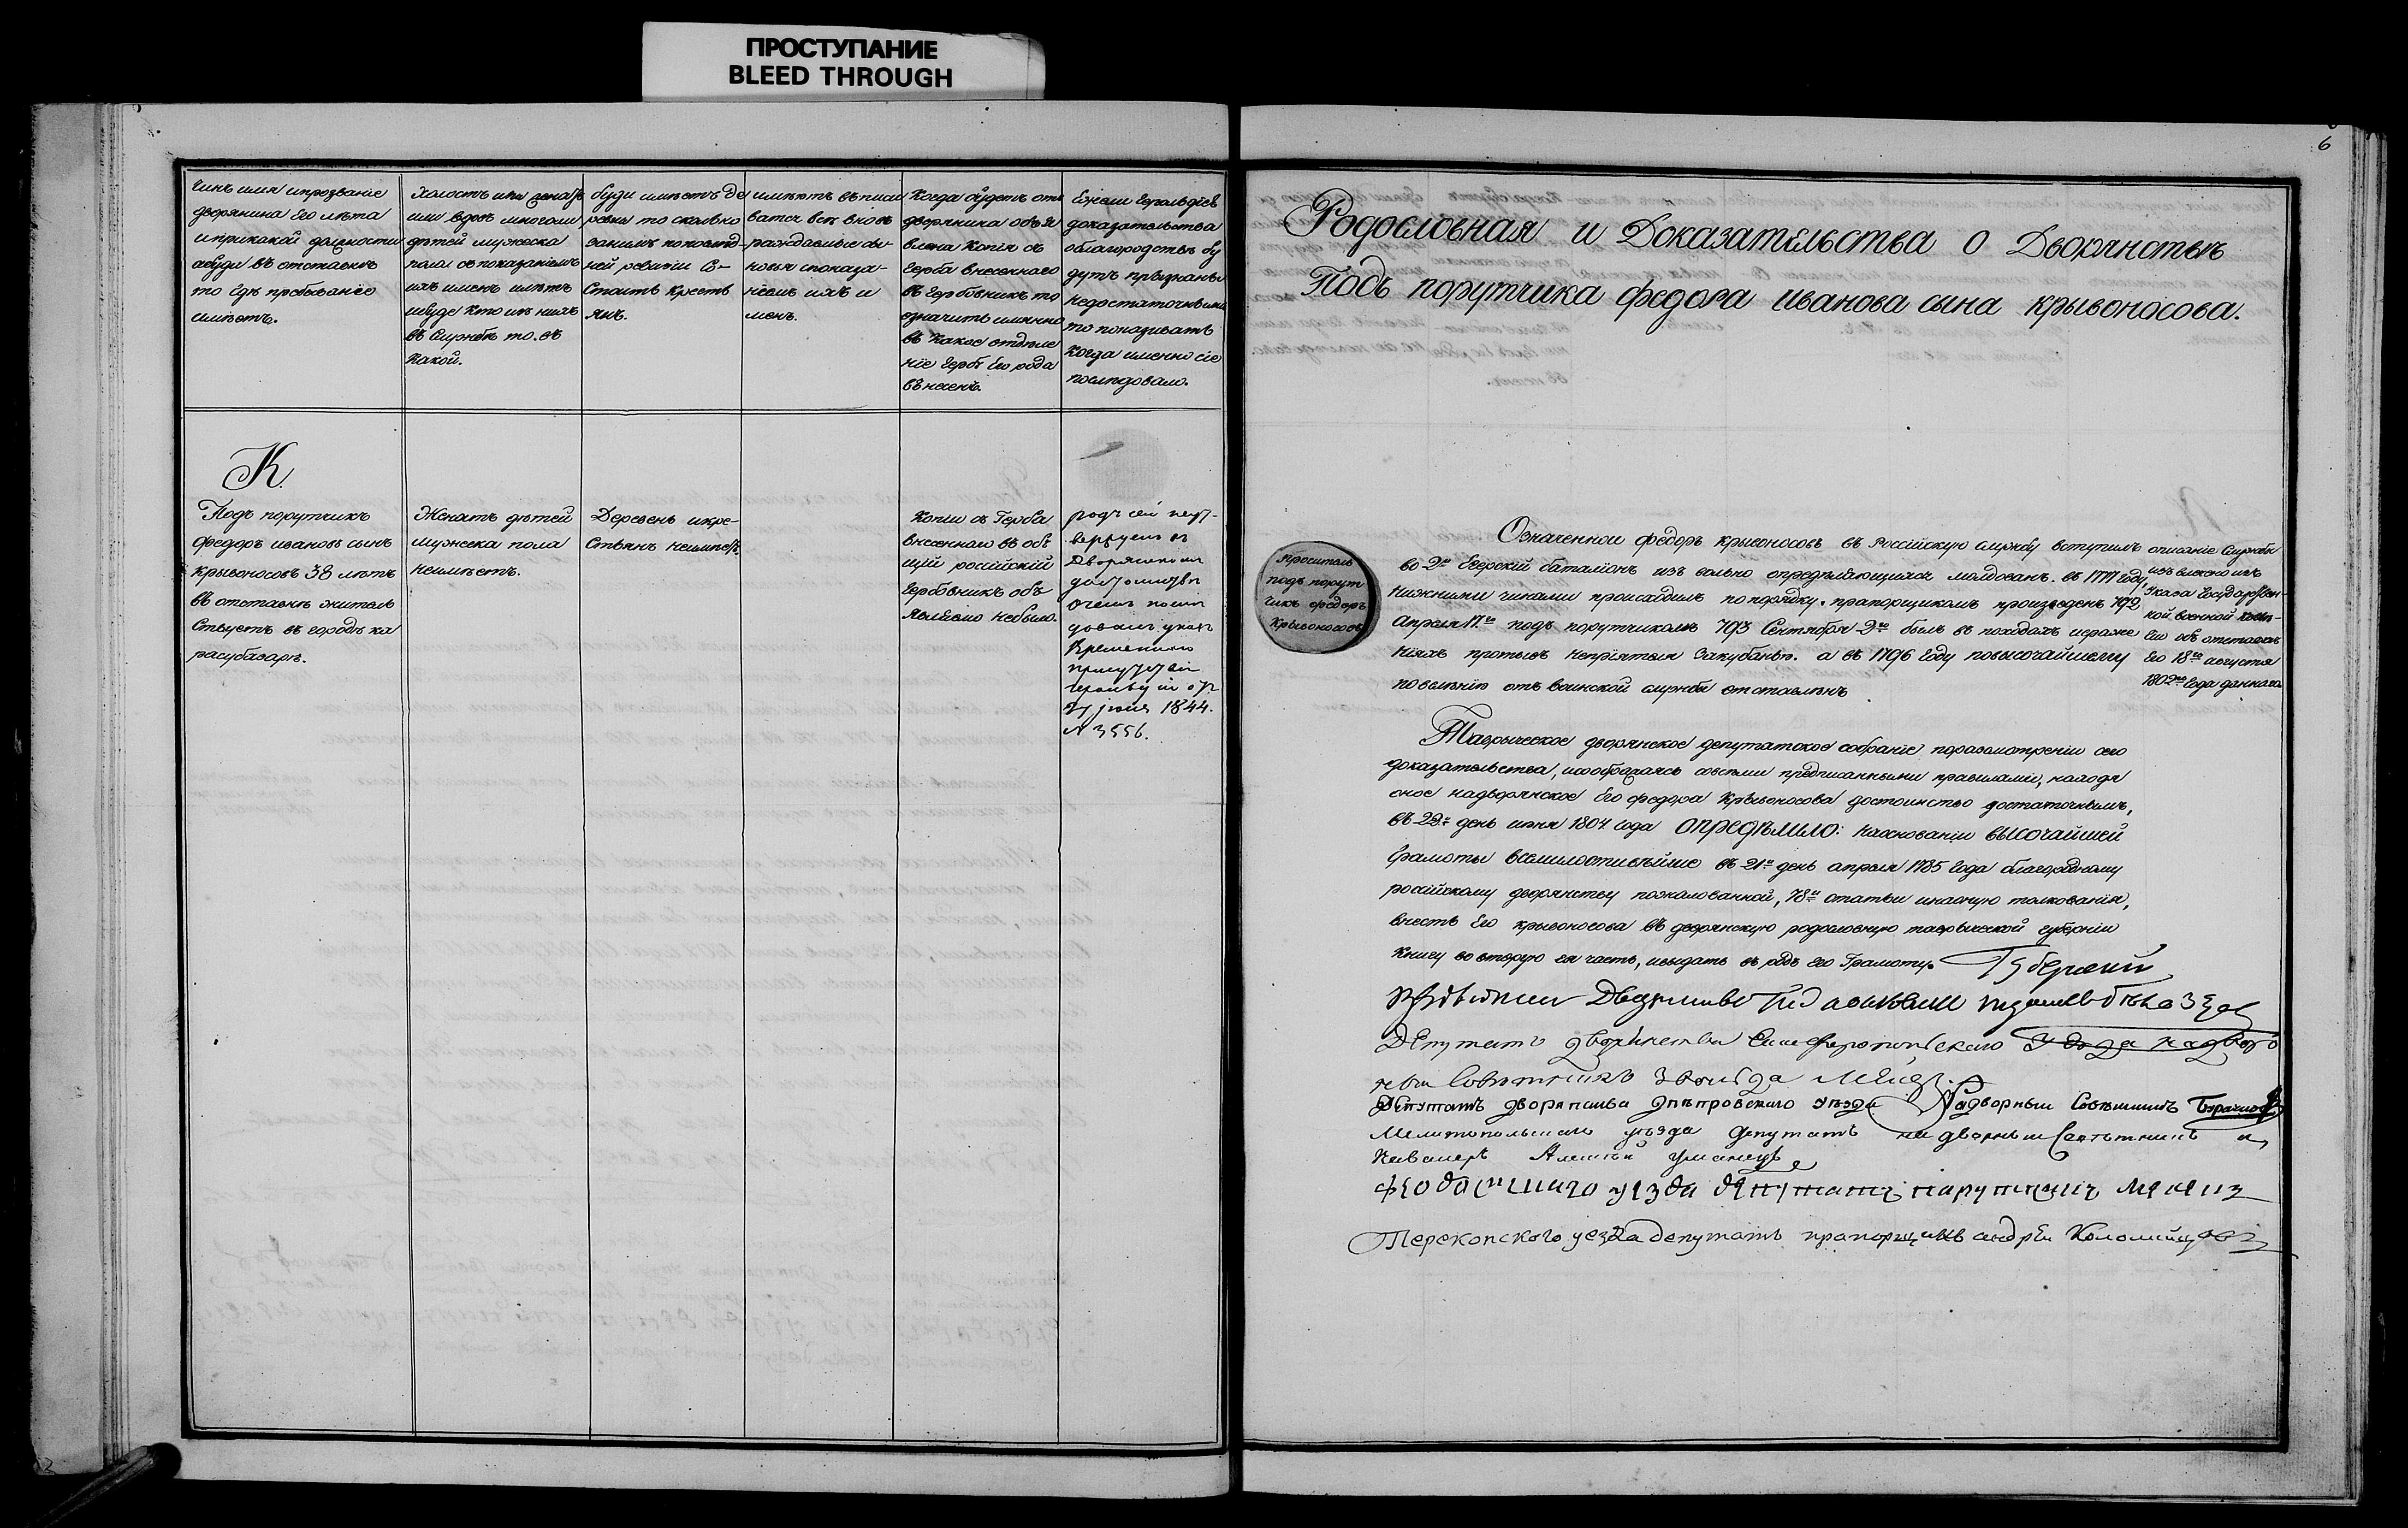 ПРОСТУПАНИЕ
BLEED THROUGH
6
Чинъ имя ипрозваніе
дворянина Его лѣта
иприкакой должности
абуди въ отставкѣ
то гдѣ пребываніе
имѣетъ.
Холостъ или женатъ
или вдовъ многоли
дѣтей мужеска
пола съ показаніемъ
ихъ именъ илѣтъ
ибуде кто изъ нихъ
въ службѣ то въ
какой.
буди имѣетъ де
ревни то сколько
занимъ попослѣд-
ней ревизіи со-
стоитъ крестъ
янъ.
имѣютъ вписы
ватся всѣ вновь
раждаемые сы-
новья спказа-
ніемъ ихъ и
менъ.
Когда будетъ отъ
дворянина объя
влена копія съ
Герба внесеннаго
въ Гербовникъ то
означить имянно
въ какое отдѣле
ніе Гербъ Его рода
внесенъ.
Ежели Герольдіею
доказательства
облагородствѣ бу
дутъ признаны
недостаточными
то показывать
когда именно сіе
послѣдовало.
К.
Подъ порутчикъ
Федоръ ивановъ сынъ
Крывоносовъ 38 лѣтъ
въ отставкѣ жителъ
ствуетъ въ городѣ ка
расубазарѣ.
Женатъ дѣтей
мужеска пола
неимѣетъ.
Деревень икре-
стьянъ неимѣетъ.
Копіи съ Герба
внесеннаго въ об
щій россійскій
Гербовникъ объ
явлено небыло.
родъ сей
Дворянскомъ
указъ
Временнаго
присутствія
Герольдіи отъ
27 1844.
№ 3556.
Родословная и Доказательства о Дворянствѣ
Подъ порутчика федора иванова сына крывоносова.
Проситель
подъ порут
чикъ федоръ
Крывоносовъ
Означенной федоръ крывоносовъ въ Россійскую службу вступилъ
во 2й Егерскій баталіонъ изъ вольно опредѣляющихся молдованъ. въ 1777 году,
нижними чинами происходилъ попорядку. прапорщикомъ произведенъ 792
апреля 17го подъ порутчикомъ 793 Сентября 2го былъ въ походахъ исраже
ніяхъ протывъ непріятеля Закубанью. а въ 1796 Году повысочайшему
повелѣнію отъ воинской службы отставленъ
описаніе службы
изъ
Указа Государствен-
ной военной колѣ-
гіи объ отставкѣ
Его 18го августа
1802го Года даннаго
Таврыческое дворянское депутатское собраніе поразсмотреніи сего
доказательства, исообразаясь совсѣми предписанными правилами, находя
оное надворянское Его федора Крывоносова достоинство достаточнымъ,
въ 22й день июня 1804 года опредѣлило: наоснованіи высочайшей
Грамоты всемилостивѣйше въ 21й день апреля 1785 Года благородному
россійскому дворянству пожалованной, 78й статьи инаоную толкованія,
внесть Его крывоносова въ дворянскую родословную таврыческой губерніи
книгу во вторую ея часть, ивыдать въ родъ его Грамоту. Губернскій
Депутатъ дворянства Симферопольскаго уезда надвор
ный Совѣтникъ
Депутатъ дворянства днѣпровскаго уѣзда Надворный Совѣтникъ
Мелитопольскаго уѣзда депутатъ надворный Совѣтникъ и
Кавалеръ Алексѣй Уманецъ
Феодосийскаго уезда депутатъ парутчикъ
Перекопского уезда депутатъ прапорщикъ андрѣй Коломийцовъ